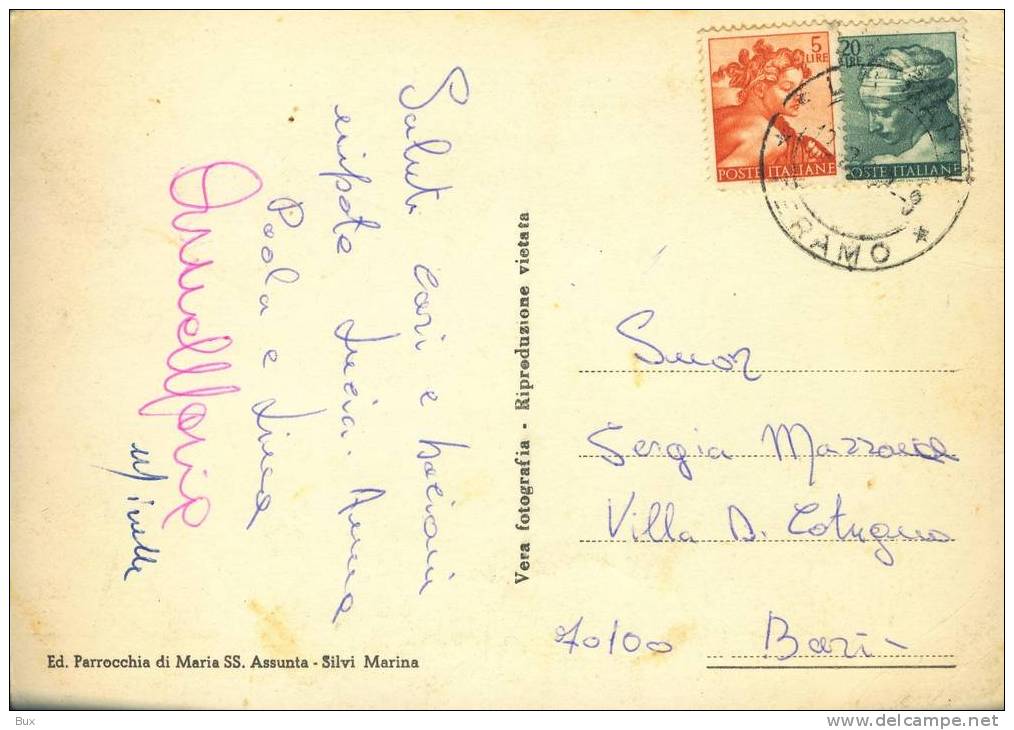 Saluti cari e bacioni
nipote Lucia. Anna
Paola e Lina
AnnaMaria
5
LIRE
20
LIRE
POSTE ITALIANE
POSTE ITALIANE
TERAMO
Vera fotografia - Riproduzione vietata
Suor
Sergia
Villa D. Cotugno
70100 Bari
Ed. Parrocchia di Maria SS. Assunta - Silvi Marina
Bux
http://www.delcampe.net